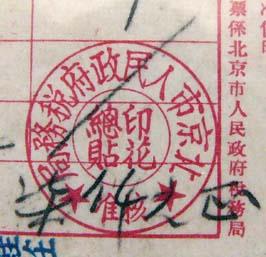 票係北京市人民政府稅務局
北京市人民政府稅務局
印花
總貼
核准